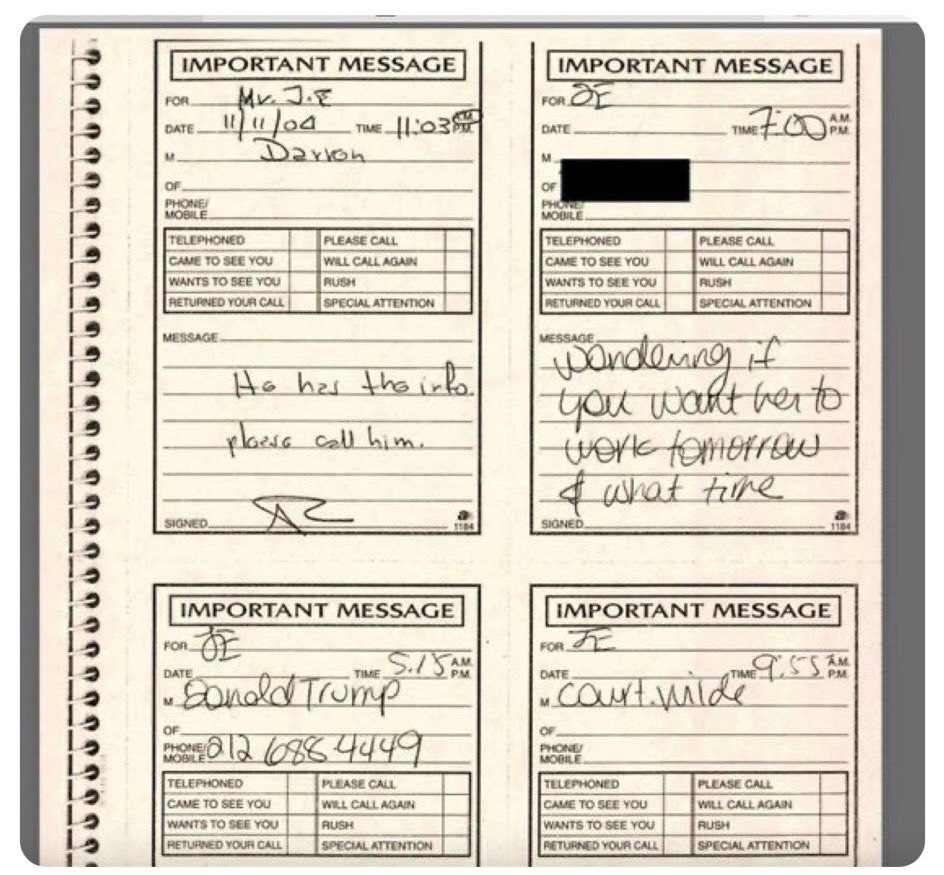 IMPORTANT MESSAGE
FOR Mr. J.E
DATE 11/11/04 TIME 11:03 A.M. P.M.
M Darren
OF
PHONE/
MOBILE
TELEPHONED PLEASE CALL
CAME TO SEE YOU WILL CALL AGAIN
WANTS TO SEE YOU RUSH
RETURNED YOUR CALL SPECIAL ATTENTION
MESSAGE
He has the info.
please call him.
SIGNED
1184
IMPORTANT MESSAGE
FOR JE
DATE TIME 7:00 A.M. P.M.
M
OF
PHONE/
MOBILE
TELEPHONED PLEASE CALL
CAME TO SEE YOU WILL CALL AGAIN
WANTS TO SEE YOU RUSH
RETURNED YOUR CALL SPECIAL ATTENTION
MESSAGE
wondering if
you want her to
work tomorrow
& what time
SIGNED
1184
IMPORTANT MESSAGE
FOR JE
DATE TIME 5:15 A.M. P.M.
M Donald Trump
OF
PHONE/
MOBILE 212 688 4449
TELEPHONED PLEASE CALL
CAME TO SEE YOU WILL CALL AGAIN
WANTS TO SEE YOU RUSH
RETURNED YOUR CALL SPECIAL ATTENTION
IMPORTANT MESSAGE
FOR JE
DATE TIME 9:55 A.M. P.M.
M Court. Wilde
OF
PHONE/
MOBILE
TELEPHONED PLEASE CALL
CAME TO SEE YOU WILL CALL AGAIN
WANTS TO SEE YOU RUSH
RETURNED YOUR CALL SPECIAL ATTENTION